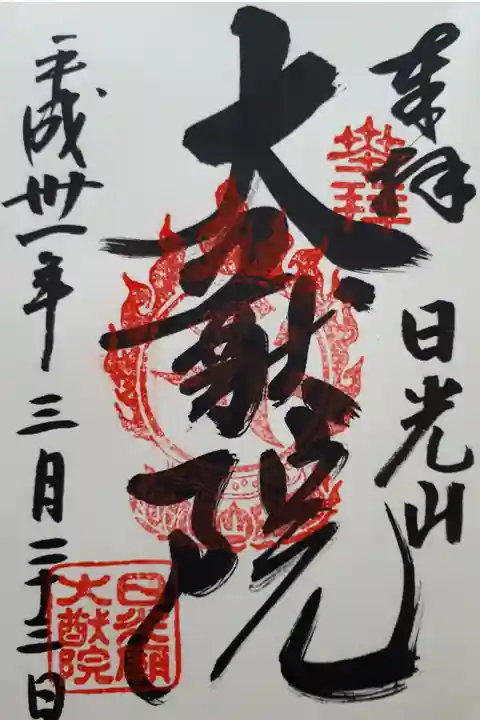 奉拝
日光山
大猷院
平成卅一年三月二十三日
日光廟
大猷院